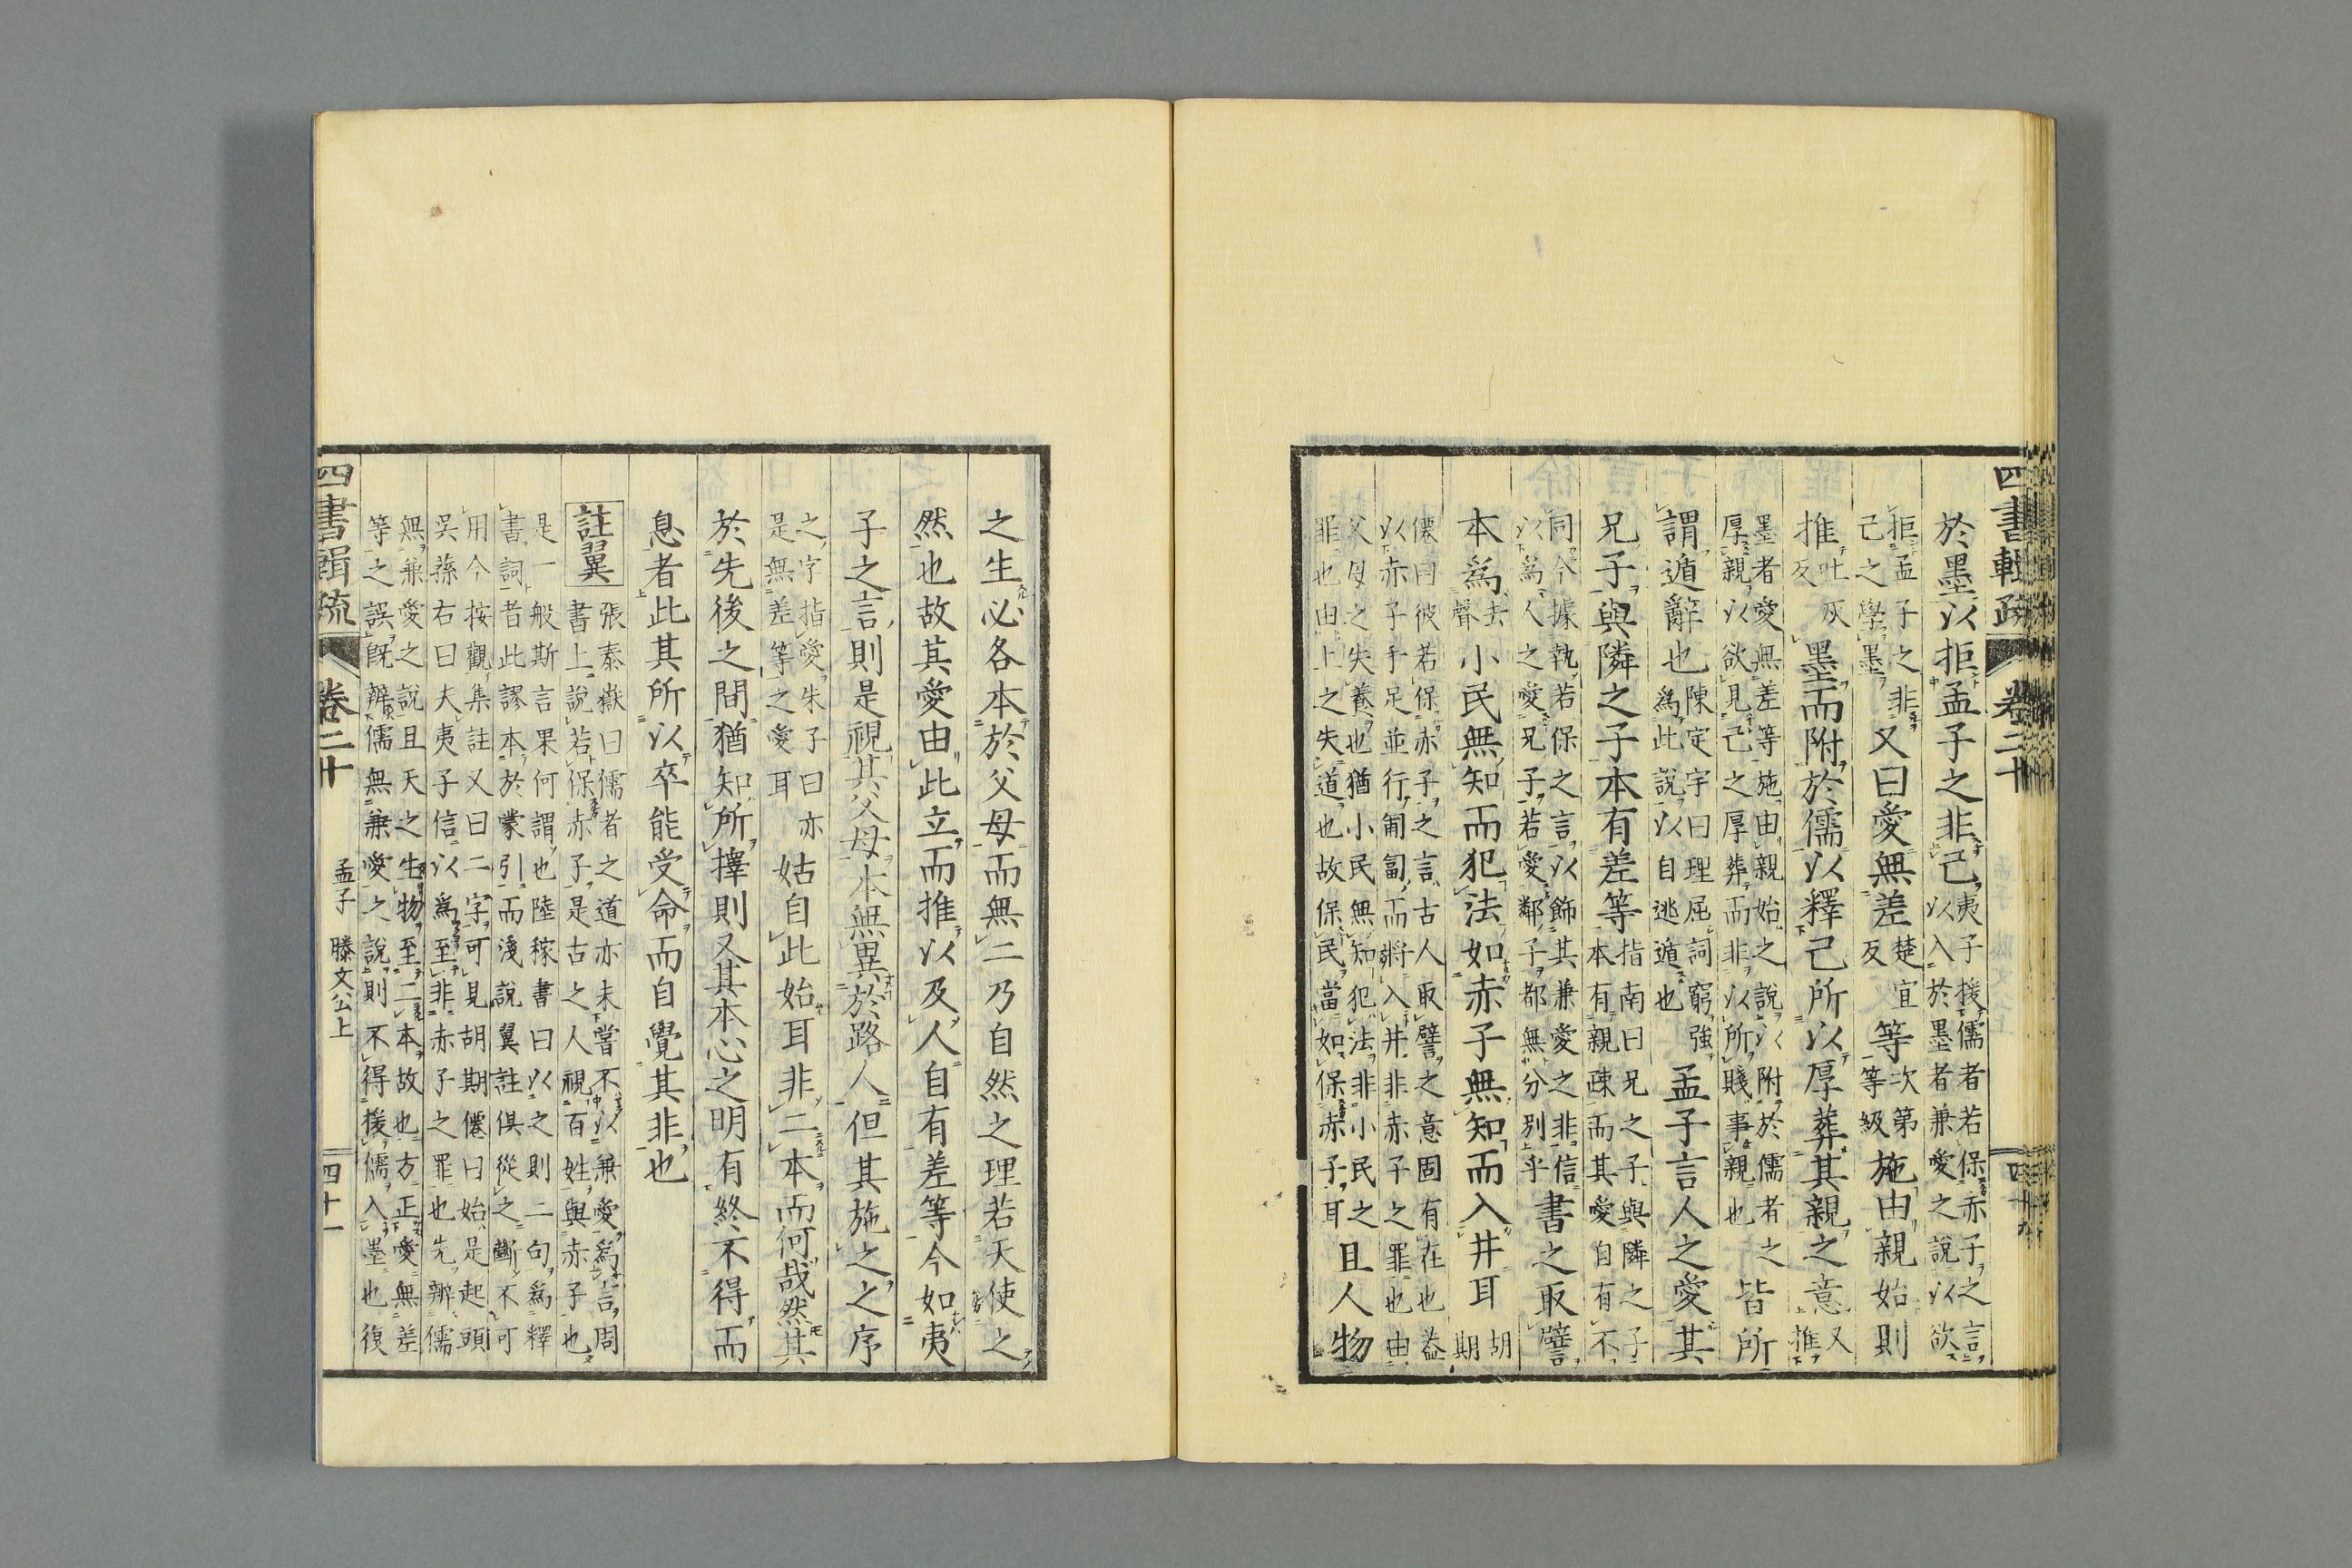 四書輯疏 卷二十 四十
於墨以拒孟子之非己夷子援儒者若保赤子之言以入於墨者兼愛之說以欲
拒孟子之非己之學墨又曰愛無差楚宜反等次第等級施由親始則
推吐灰反墨而附於儒以釋己所以厚葬其親之意又推
墨者愛無差等施由親始之說以附於儒者之厚親以欲見己之厚葬而非以所賤事親也皆所
謂遁辭也陳定宇曰理屈詞窮強爲此說以自逃遁也孟子言人之愛其
兄子與隣之子本有差等指南曰兄之子與隣之子本有親疎而其愛自有不
同今據執若保之言以飾其兼愛之非信以爲人之愛兄子若愛鄰子都無分別乎書之取譬
本爲去聲小民無知而犯法如赤子無知而入井耳胡期
僊曰彼若保赤子之言古人取譬之意固有在也蓋以赤子手足並行匍匐而將入井非赤子之罪也由
父母之失養也猶小民無知犯法非小民之罪也由上之失道也故保民當如保赤子耳且人物
之生必各本於父母而無二乃自然之理若天使之
然也故其愛由此立而推以及人自有差等今如夷
子之言則是視其父母本無異於路人但其施之之序
之字指愛朱子曰亦是無差等之愛耳姑自此始耳非二本而何哉然其
於先後之間猶知所擇則又其本心之明有終不得而
息者此其所以卒能受命而自覺其非也
註翼張泰嶽曰儒者之道亦未嘗不以兼愛爲言周書上說若保赤子是古之人視百姓與赤子也
是一般斯言果何謂也陸稼書曰以之則二句爲釋書詞者此謬本於蒙引而淺說翼註俱從之斷不可
用今按觀集註又曰二字可見胡期僊曰始是起頭吳蓀右曰夫夷子信以爲至非赤子之罪也先辨儒
無兼愛之說且天之生物至二本故也方正愛無差等之誤旣辨儒無兼愛之說則不得援儒入墨也復
四書輯疏 卷二十 孟子 滕文公上 四十一